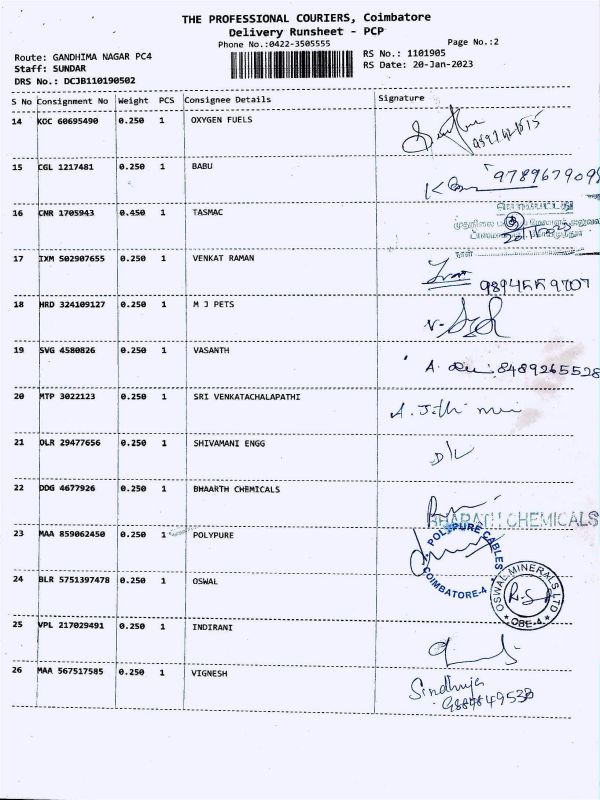 THE PROFESSIONAL COURIERS, Coimbatore
Delivery Runsheet - PCP
Phone No.:0422-3505555
Page No.:2
Route: GANDHIMA NAGAR PC4
RS No.: 1101905
Staff: SUNDAR
RS Date: 20-Jan-2023
DRS No.: DCJB110190502
S No Consignment No Weight PCS Consignee Details Signature
14 KOC 60695490 0.250 1 OXYGEN FUELS
15 CGL 1217481 0.250 1 BABU
16 CNR 1705943 0.450 1 TASMAC
17 IXM 502907655 0.250 1 VENKAT RAMAN
18 HRD 324109127 0.250 1 M J PETS
19 SVG 4580826 0.250 1 VASANTH
8489265528
20 MTP 3022123 0.250 1 SRI VENKATACHALAPATHI
21 DLR 29477656 0.250 1 SHIVAMANI ENGG
22 DDG 4677926 0.250 1 BHAARTH CHEMICALS
BHARATH CHEMICALS
23 MAA 859062450 0.250 1 POLYPURE
POLYPURE CABLES
COIMBATORE-4
24 BLR 5751397478 0.250 1 OSWAL
OSWAL MINERALS LTD
CBE-4.
R.S
25 VPL 217029491 0.250 1 INDIRANI
26 MAA 567517585 0.250 1 VIGNESH
Sindhuja